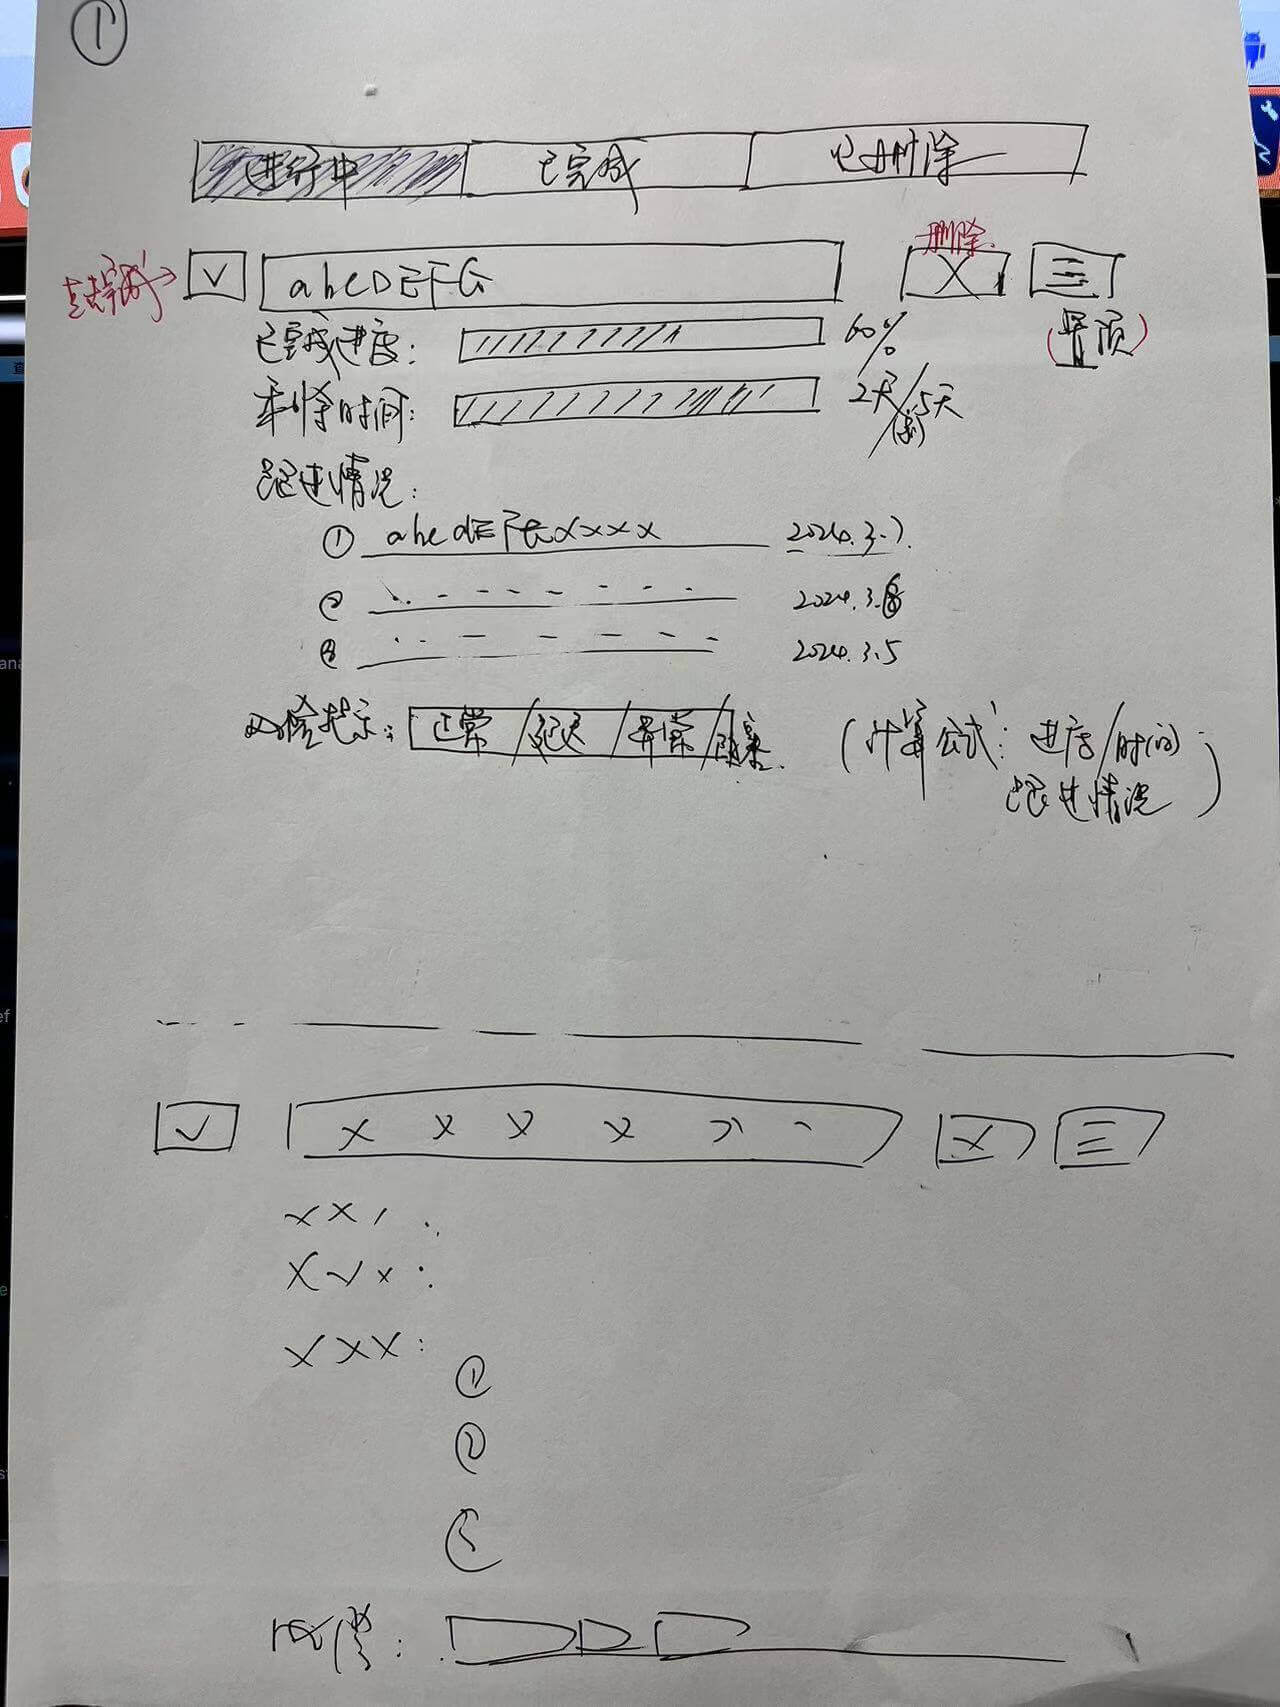 ①
进行中 已完成 已删除
点击完成→ ✓ abcDEFG 删除 X 三
(置顶)
已完成进度: 60%
剩余时间: 2天/5天
跟进情况:
① abcdEF X X X X 2024.3.7
② 2024.3.6
③ 2024.3.5
风险提示: 正常/延迟/异常/ (计算公式: 进度/时间
跟进情况)
✓ X X X X X 三
X X
X ✓ X :
X X X :
①
②
③
风险: